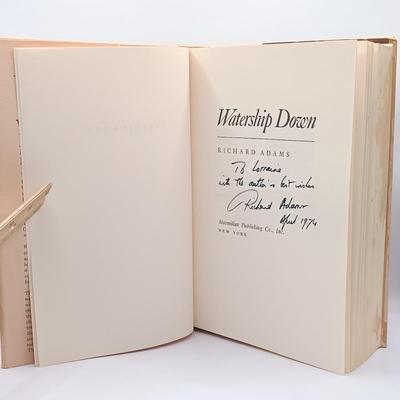 Watership Down
RICHARD ADAMS
To Lorraine
with the author's best wishes
Richard Adams
April 1974
Macmillan Publishing Co., Inc.
NEW YORK